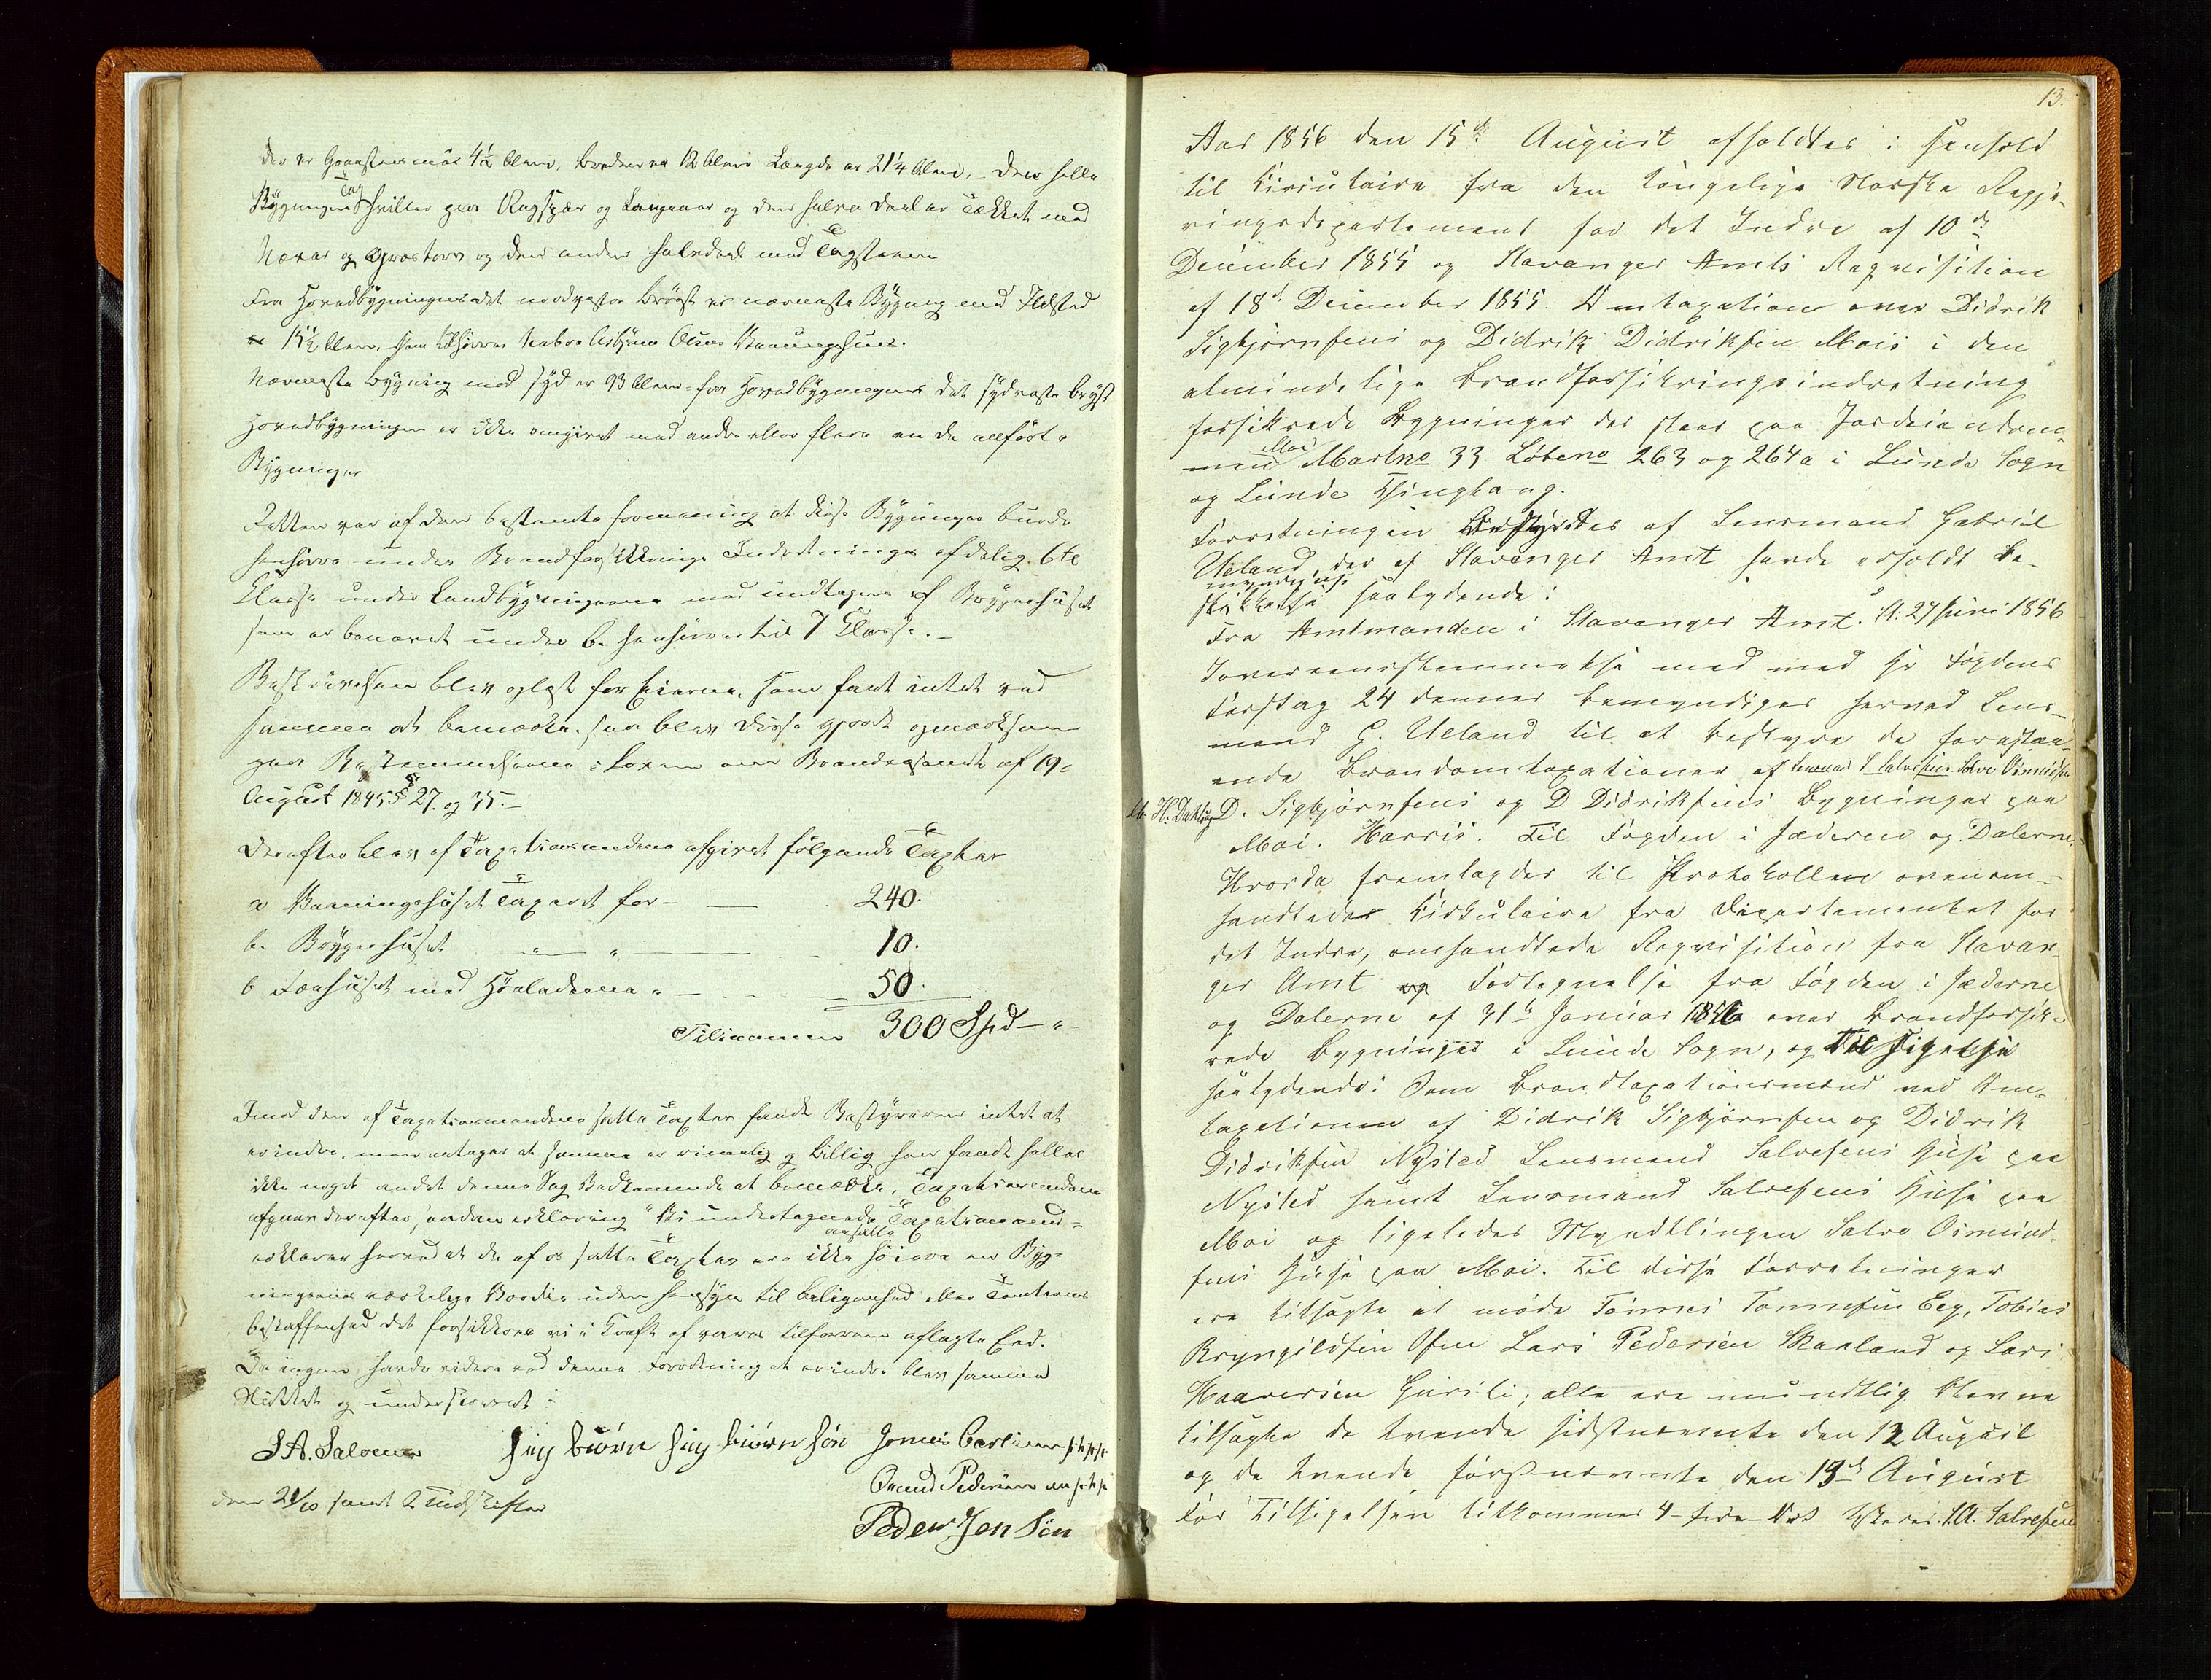 der er Graasteensmur 4½ Alen, bredden er 12 Alen Længde er 21¼ Alen, den hele
Bygningens Tag hviler paa Ragspær og Langaaser og den halve Deel er Tækket med
Næver og Græstorv og den anden halvdeel med Tagsteen
Fra Hovedbygningens det nordvestre Bryst er nærmeste Bygning med Ildsted
er 15½ Alen, som tilhører Naboe Asbjørn Olsens Vaaningshuus.
Nærmeste Bygning mod syd er 93 Alen fra Hovedbygningens det sydveste bryst
Hovedbygningen er ikke omgivet med andre eller flere en de anførte
Bygninger
Retten var af den bestemte formening at disse Bygninger burde
henføre under Brandforsikkrings Indretningens afdelig 6te
Klasse under Landbygningerne med undtagen af Bryggerhuset
som er benævnt under b. henføres til 7 Klasse.-
Beskrivelsen blev oplæst for Eierne, som fandt intet ved
samme at bemærke. saa blev disse gjordt opmærksom
paa Bestemmelserne i Loven om Brandvæsenet af 19
August 1845 § 27. og 35.-
Derefter blev af Taxationsmændene afgivet følgende Taxter
a Vaaningshuset Taxeret for - — 240.
b. Bryggerhuset — " — 10.
c Fæehuset med Høeladerne " — 50.
Tilsammen 300 Spd — "
Imod den af Taxationsmændene satte Taxter fandt Bestyreren intet at
erindre, men antager at samme er rimelig og billig han fandt heller
ikke noget andet denne Sag Vedkommende at bemærke, Taxationsmændene
afgav derefter saadan erklæring "Vi undertegnede Taxationsmænd
erklærer herved at de af os satte ansatte Taxter ere ikke høiere en Byg-
ningernes værkelige Værdie uden hensyn til beligenhed eller Tomternes
beskaffenhed det forsikkrer vi i Kraft af vores tilforn aflagte Eed.
Da ingen havde videre ved denne Forretning at erindre blev samme
Sluttet og underskrevet:
S. A. Salvesen Sig biørn Sig biørn søn Jonas Carlsen
Omund Pedersen
Peder Jen Sen
13.
Aar 1856 den 15de August afholdtes i Henhold
til Circulaire fra den kongelige Norske Regje-
ringsdepartement for det Indre af 10de
December 1855 og Stavanger Amts Reqvisition
af 18de December 1855. Omtaxation over Didrik
Sigbjørnsens og Didrik Didriksen Mois i den
almindelige Brandforsikringsindretning
forsikrede Bygninger der staar paa Jordeiendom-
men Moi Martno 33 Løbeno 263 og 264a i Lunde Sogn
og Lunde Thinglaug.
Forretningen Bestyrtes af Lensmand Gabriel
Ueland, der af Stavanger Amt havde erholdt Be-
skikkelse myndigelse saalydende:
Fra Amtmanden i Stavanger Amt. St: 27 Juni 1856
I overeensstemmelse med med Hr Fogdens
Forslag 24 dennes bemyndiges herved Lens-
mand G. Ueland til at bestyre de forestaa-
ende Brandomtaxationer af Lensmand S Salvesens Salve Osmundsens
D. Sigbjørnsens og D Didriksens Bygninger paa
Moi. Harris. Til Fogden i Jæderen og Dalerne.
Hvorda fremlagdes til Protokollen ovenom-
handlede Cirkulaire fra Departementet for
det Indre, omhandlede Reqvisition fra Stavan-
ger Amt og Fortegnelse fra Fogden i Jæderen
og Dalerne af 31te Januar 1856 over Brandforsik-
rede Bygninger i Lunde Sogn, og Tilsigelse
saalydende: Som Brandtaxationsmænd ved Om-
taxationen af Didrik Sigbjørnsen og Didrik
Didriksen Nysted Lensmand Salvesens Huse paa
Nysted samt Lensmand Salvesens Huse paa
Moi og ligeledes Myndtlingen Salve Osmund-
sens Huse paa Moi. Til disse Forretninger
ere tilsagte at møde Tønnes Tønnesen Eeg, Tobias
Bryngildsen Osen Lars Pedersen Skaaland og Lars
Haaversen Gursli; alle ere mundtlig Stevne
tilsagte de tvende sidstnevnte den 12 August
og de tvende førstnevnte den 13de August
For Tilsigelsen tilkommer 4- fire- Ort S. A. Salvesen